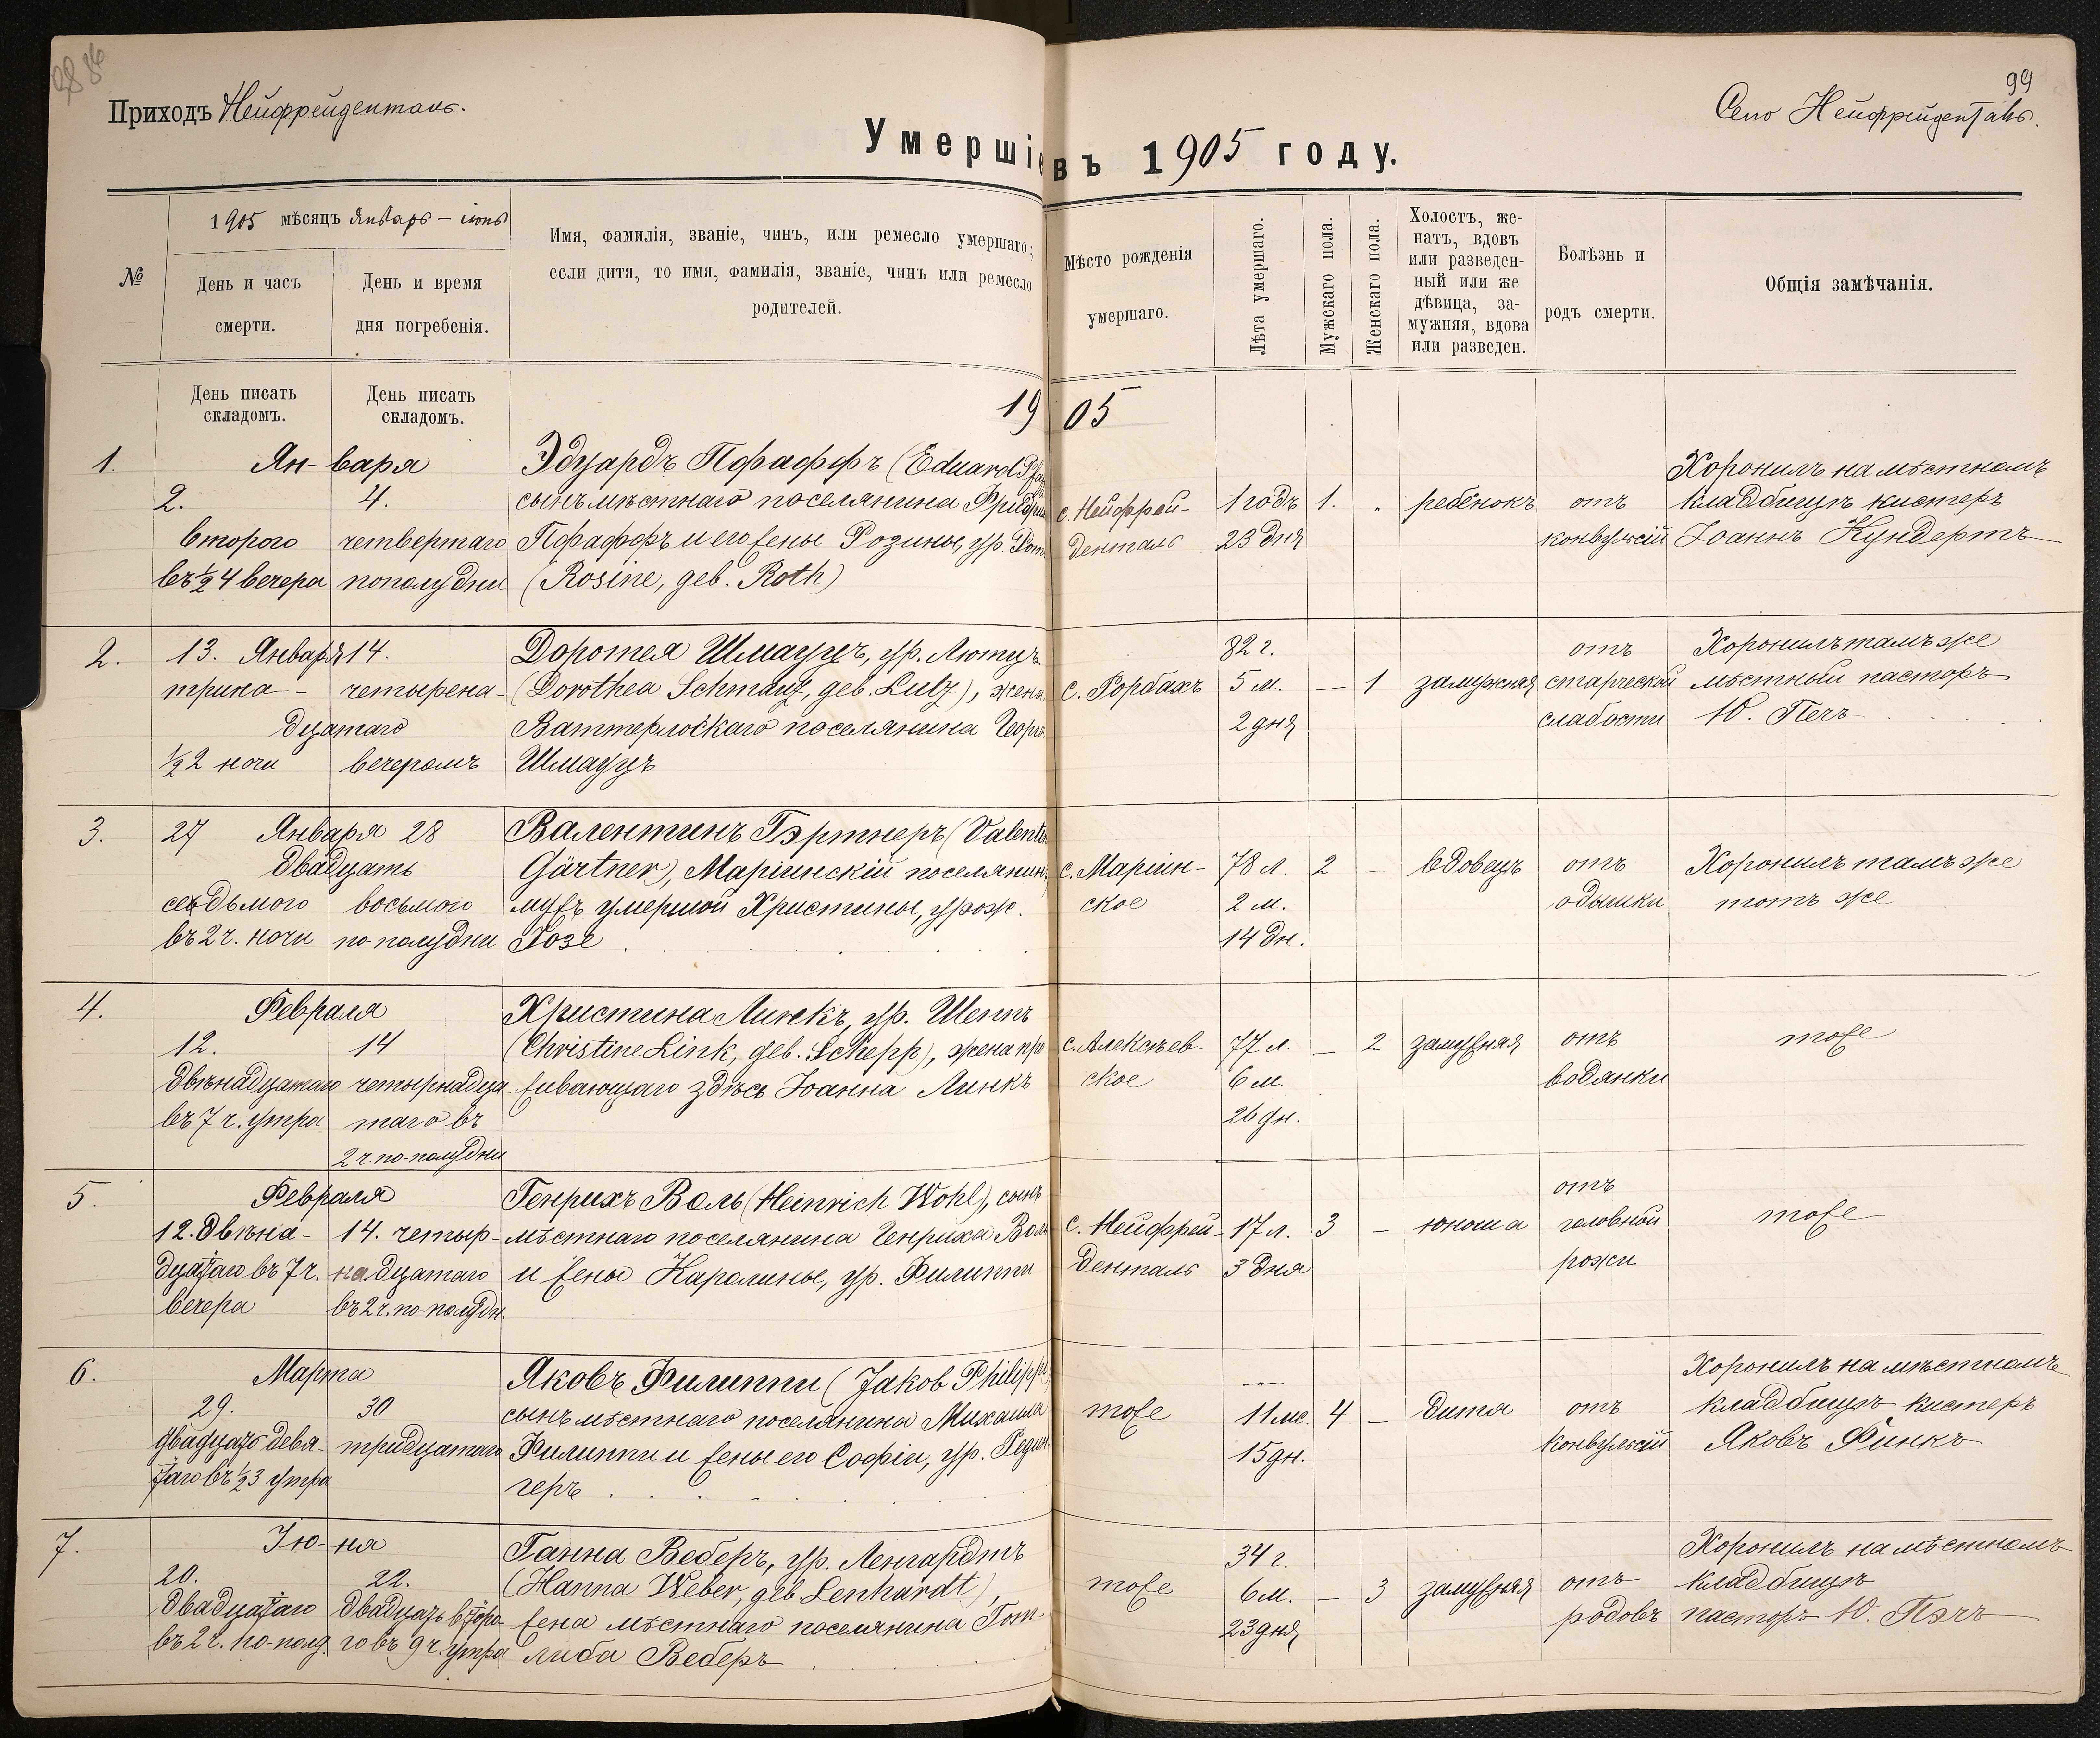 99
Приходъ Нейфрейденталь.
Село Нейфрейденталь.
Умершіе въ 1905 году.
№
1905 мѣсяцъ Январь — іюнь
День и часъ
смерти.
День и время
дня погребенія.
Имя, фамилія, званіе, чинъ, или ремесло умершаго;
если дитя, то имя, фамилія, званіе, чинъ или ремесло
родителей.
Мѣсто рожденія
умершаго.
Лѣта умершаго.
Мужскаго пола.
Женскаго пола.
Холостъ, же-
натъ, вдовъ
или разведен-
ный или же
дѣвица, за-
мужняя, вдова
или разведен.
Болѣзнь и
родъ смерти.
Общія замѣчанія.
День писать
складомъ.
День писать
складомъ.
1905
1.
Ян-варя
2. 4.
второго четвертаго
въ ½ 4 вечера пополудни
Эдуардъ Пфаффъ (Eduard Pfaff
сынъ мѣстнаго поселянина Фридри
Пфаффъ и его жены Розины, ур. Рот
(Rosine, geb. Roth)
с. Нейфрей-
денталь
1 годъ
23 дня
1.
ребёнокъ
отъ
конвульсій
Хоронилъ на мѣстномъ
кладбищѣ кистеръ
Іоаннъ Кундертъ
2.
13. Января 14.
трина- четырена-
дцатаго
½ 2 ночи вечеромъ
Доротея Шмауцъ, ур. Лютцъ
(Dorothea Schmauz, geb. Lutz), жена
Ваттерлоскаго поселянина Георга
Шмауцъ
с. Рорбахъ
82 г.
5 м.
2 дня
— 1
замужняя
отъ
старческой
слабости
Хоронилъ тамъ же
мѣстный пасторъ
Ю. Печъ
3.
27 Января 28
двадцать
седьмого восьмого
въ 2 ч. ночи по полудни
Валентинъ Гэртнеръ (Valenti
Gärtner), Маріинскій поселянин
мужъ умершой Христины, урож.
Гозе
с. Маріин-
ское
78 л.
2 м.
14 дн.
2 —
вдовецъ
отъ
одышки
Хоронилъ тамъ же
тотъ же
4.
Февраля
12. 14
двѣнадцатаго четырнадца-
въ 7 ч. утра таго въ
2 ч. по-полудни
Христина Линкъ, ур. Шеппъ
(Christine Link, geb. Schepp), жена про-
живающаго здѣсь Іоанна Линкъ
с. Алексѣев-
ское
77 л.
6 м.
26 дн.
— 2
замужняя
отъ
водянки
тоже
5.
Февраля
12. двѣна- 14. четыр-
дцатаго въ 7 ч. надцатаго
вечера въ 2 ч. по-полудн.
Генрихъ Воль (Heinrich Wohl), сынъ
мѣстнаго поселянина Генриха Воль
и жены Каролины, ур. Филиппи
с. Нейфрей-
денталь
17 л.
3 дня
3 —
юноша
отъ
головной
рожи
тоже
6.
Марта
29. 30
двадцать девя- тридцатаго
таго въ ½ 3 утра
Яковъ Филиппи (Jakob Philippi)
сынъ мѣстнаго поселянина Михаила
Филиппи и жены его Софіи, ур. Редин-
геръ
тоже
11 мс.
15 дн.
4 —
дитя
отъ
конвульсій
Хоронилъ на мѣстномъ
кладбищѣ кистеръ
Яковъ Финкъ
7.
Iю-ня
20. 22.
двадцатаго двадцать второ-
въ 2 ч. по-полд. го въ 9 ч. утра
Ганна Веберъ, ур. Ленгардтъ
(Hanna Weber, geb Lenhardt),
жена мѣстнаго поселянина Гот-
либа Веберъ
тоже
34 г.
6 м.
23 дня
— 3
замужняя
отъ
родовъ
Хоронилъ на мѣстномъ
кладбищѣ
пасторъ Ю. Пэчъ